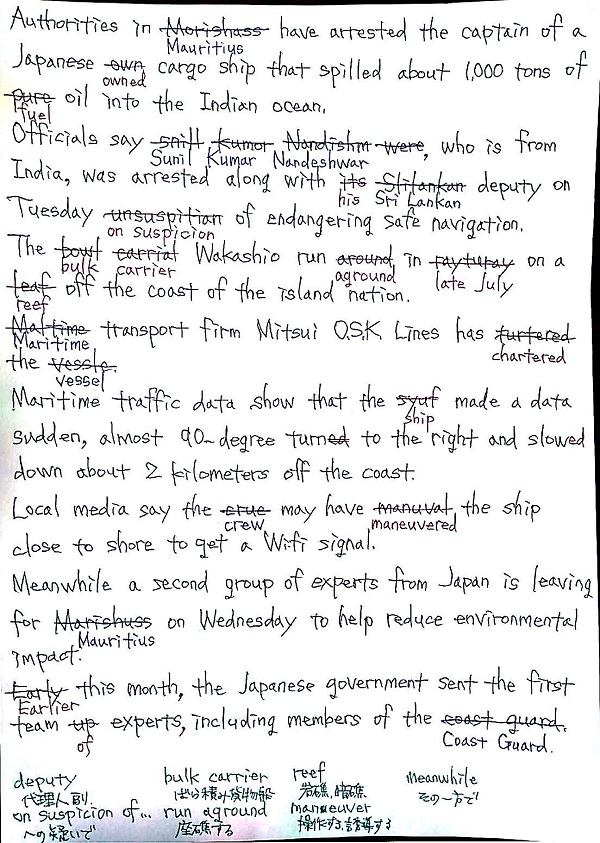 Authorities in Morishass have arrested the captain of a
Mauritius
Japanese own cargo ship that spilled about 1,000 tons of
owned
pure oil into the Indian ocean.
fuel
Officials say snill kumar Nandishm were, who is from
Sunil Kumar Nandeshwar
India, was arrested along with its Slilankan deputy on
his Sri Lankan
Tuesday unsuspitian of endangering safe navigation.
on suspicion
The bowl carrial Wakashio run around in rayturay on a
bulk carrier aground late July
leaf off the coast of the island nation.
reef
Maltime transport firm Mitsui O.S.K. Lines has turtered
Maritime chartered
the vessle.
vessel
Maritime traffic data show that the syuf made a data
ship
sudden, almost 90-degree turned to the right and slowed
down about 2 kilometers off the coast.
Local media say the crue may have manuval the ship
crew maneuvered
close to shore to get a Wifi signal.
Meanwhile a second group of experts from Japan is leaving
for Marishuss on Wednesday to help reduce environmental
Mauritius
impact.
Early this month, the Japanese government sent the first
Earlier
team up experts, including members of the coast guard.
of Coast Guard.
deputy bulk carrier reef Meanwhile
代理人、副. ばら積み貨物船 岩礁、暗礁 その一方で
on suspicion of... run aground maneuver
〜の疑いで 座礁する 操作する、誘導する